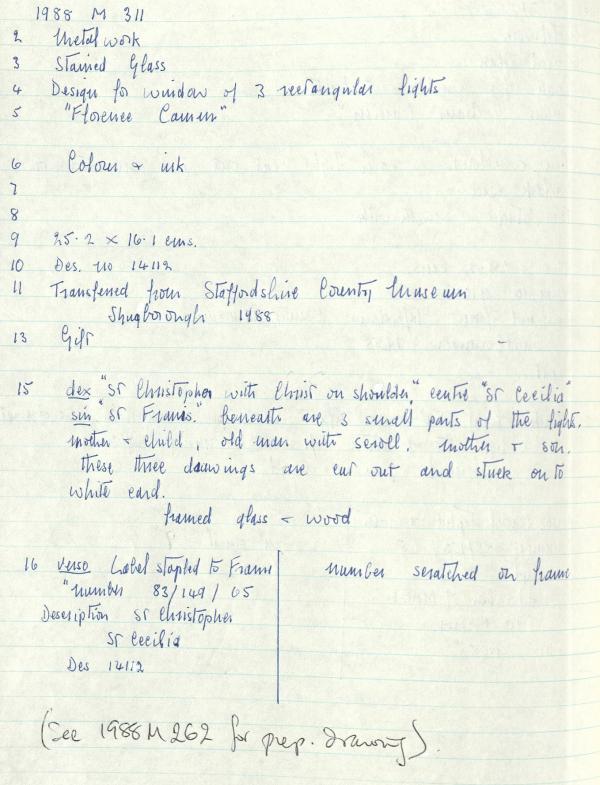 1988 M 311
2 Metalwork
3 Stained Glass
4 Design for window of 3 rectangular lights
5 "Florence Camm"
6 Colour & ink
7
8
9 25.2 x 16.1 cms.
10 Des. no 14112
11 Transferred from Staffordshire County Museum
Shugborough 1988
13 Gift
15 dex "St Christopher with Christ on shoulder," centre "St Cecilia"
sin "St Francis." beneath are 3 small parts of the lights.
mother & child, old man with scroll. mother & son.
these three drawings are cut out and stuck on to
white card.
framed glass & wood
16 verso Label stapled to Frame
"number 83/149/05
Description St Christopher
St Cecilia
Des 14112
number scratched on frame
(See 1988M262 for prep. drawing).